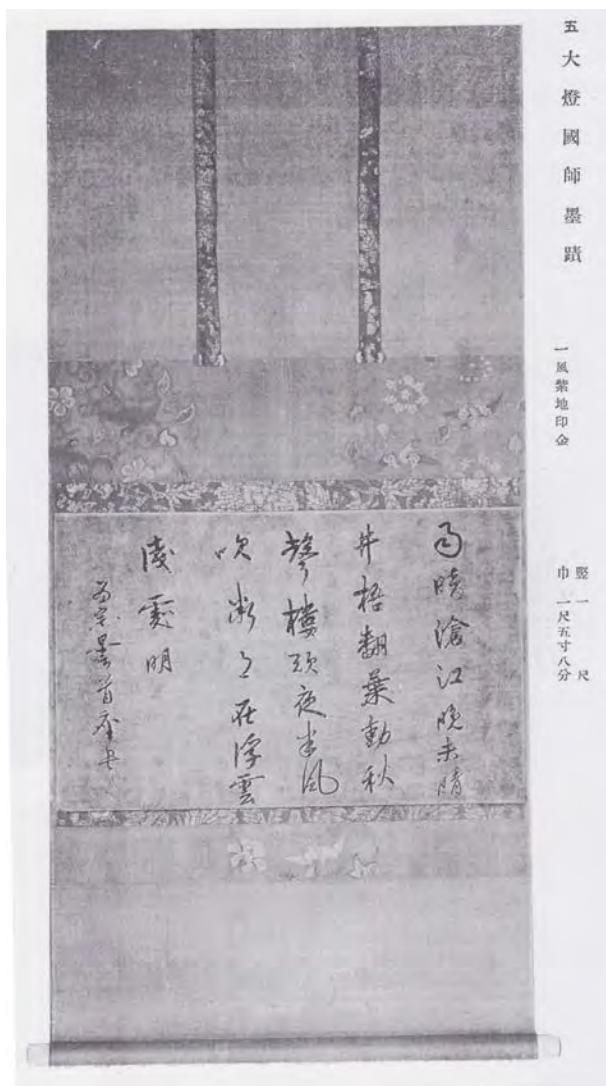 五 大燈國師墨蹟
一風紫地印金
竪 一 尺
巾 一尺五寸八分
雨暗滄江晩未晴
井梧翻葉動秋
聲樓頭夜半風
吹断月在浮雲
淺處明
首座